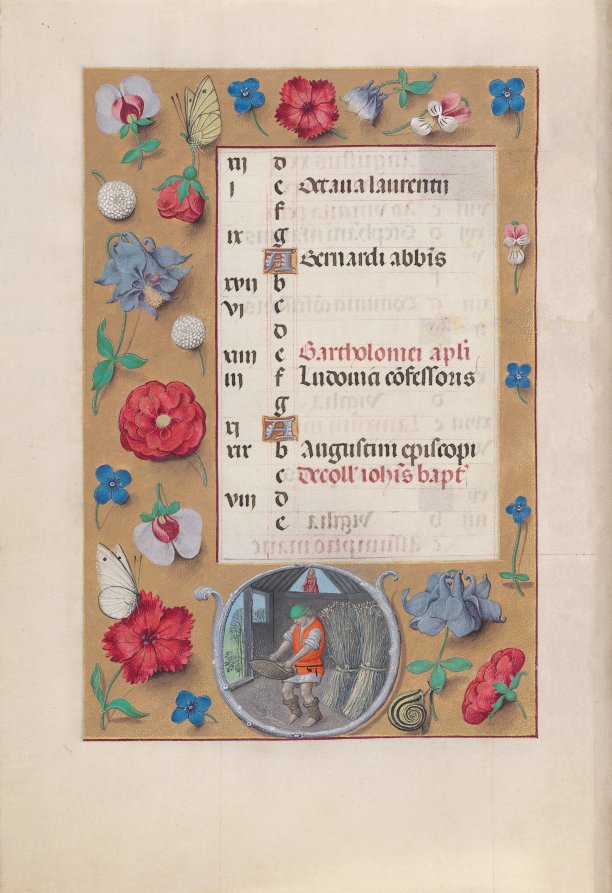 xij d
j e Octaua laurentij
f
ix g
A Bernardi abbis
xvij b
vj c
d
xiiij e Bartholomei apli
iij f Ludouici cõfessoris
g
xj A
xix b Augustini episcopi
c Decoll' iohis bapt'
viij d
e